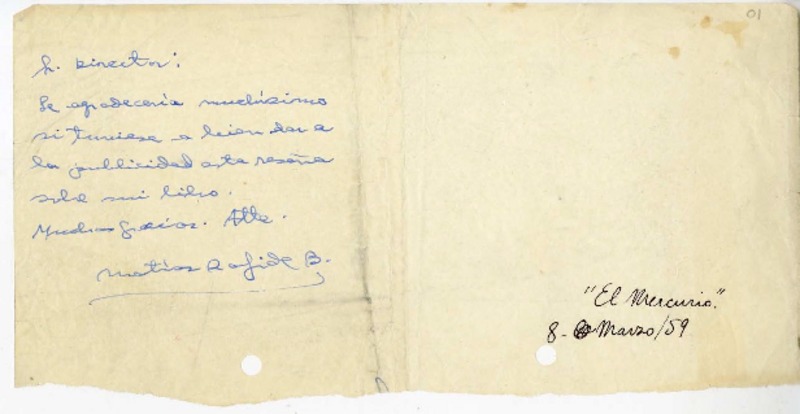 01
Sr. Director:
Le agradecería muchísimo
si tuviese a bien dar a
la publicidad esta reseña
sobre mi libro.
Muchas gracias. Atte.
Matías Rafide B.
"El Mercurio".
8 - Marzo/59